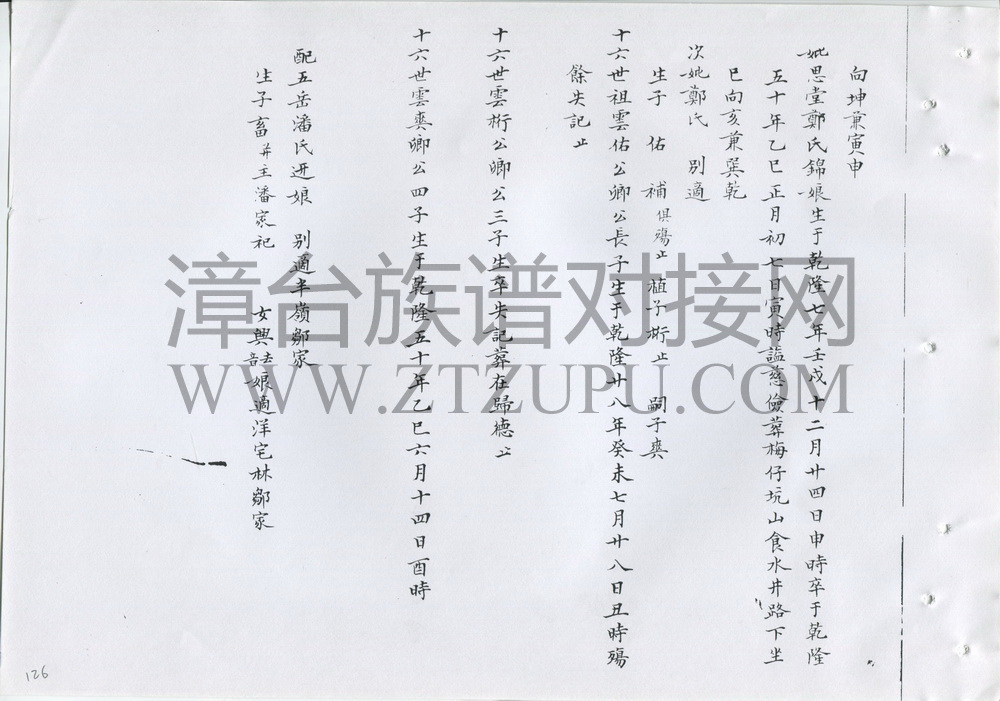 向坤兼寅申
妣思堂鄭氏錦娘生于乾隆七年壬戍十二月廿四日申時卒于乾隆
五十年乙巳正月初七日寅時諡慈儉葬梅仔坑山食水井路下坐
巳向亥兼巽乾
次妣鄭氏 別適
生子 佑 補俱殤止 植子桁止 嗣子奭
十六世祖雲佑公卿公長子生于乾隆廿八年癸未七月廿八日丑時殤
餘失記止
十六世雲桁公卿公三子生卒失記葬在歸德止
十六世雲奭卿公四子生于乾隆五十年乙巳六月十四日酉時
配五岳潘氏 娘 別適半嶺鄒家
生子畜并主潘家祀 女興 娘適洋宅林鄒家
126
漳台族谱对接网
WWW.ZTZUPU.COM